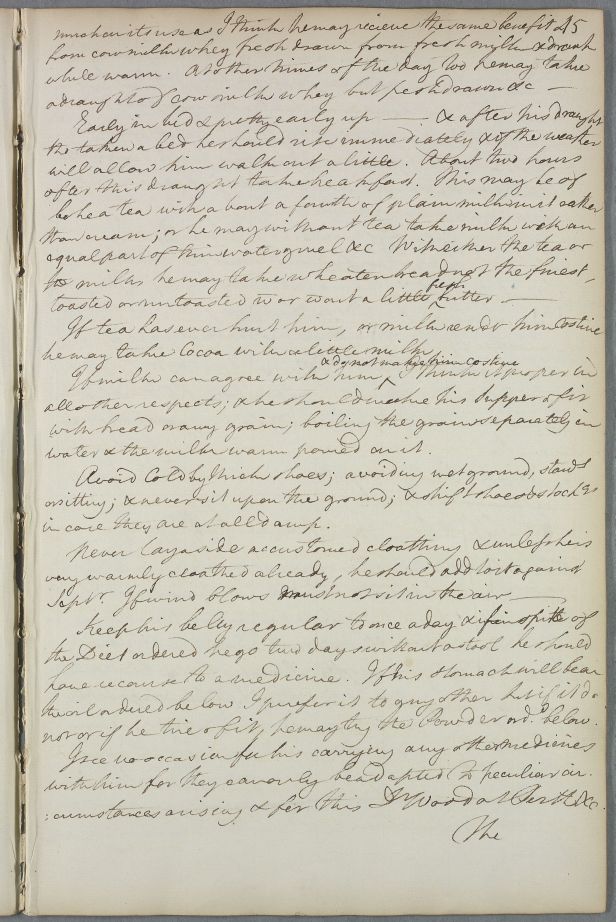 much or its use as I think he may recieve the same benefit 45
from cow milk whey fresh drawn from fresh milk & drank
while warm. At other times of the day too he may take
a draught of cow milk whey but fresh drawn &c —
Early in bed & pretty early up — & after his draught
tho taken a bed he should rise immediately & if the weather
will allow him walk out a little. About two hours
after this draught take breakfast. This may be of
bohea tea with about a fourth of plain milk instead rather
than cream; or he may without tea take milk with an
equal part of thin water gruel &c With either the tea or
milk he may take wheaten bread not the finest,
toasted or untoasted with or without a little fresh butter —
If tea has ever hurt him, or milk render him costive
he may take Cocoa with a little milk
If milk can agree with him, & do not make him costive I think it proper in
all other respects; & he should make his supper of it
with bread or any grain; boiling the grain separately in
water & the milk warm poured on it.
Avoid Cold by thick shoes; avoiding wet ground, standg
or sitting; & never sit upon the ground; & shift shoes & stockgs
in case they are at all damp.
Never lay aside accustomed cloathing & unless he is
very warmly cloathed already, he should add to it against
Septr. If wind blows must not sit in the air —
Keep his belly regular to once a day & if in spite of
the Diet ordered he go two days without a stool he should
have recourse to a medicine. If his stomach will bear
the oil ordered below I prefer it to any other but if it do
not or if he tire of it, he may try the Powder ord. below.
I see no occasion for his carrying any other medicines
with him for they can only be adapted to peculiar cir-
:cumstances arising & for this Dr Wood at Perth &c.
The